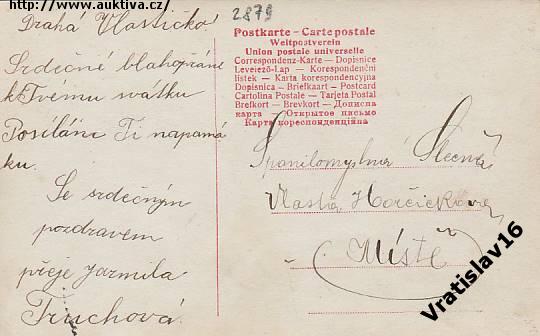 http://www.auktiva.cz/
2879
Drahá Vlastičko!
Srdečné blahopřání
k Tvému svátku
Posílám Ti napamá
ku.
Se srdečným
pozdravem
přeje Jarmila
Postkarte – Carte postale
Weltpostverein
Union postale universelle
Correspondenz-Karte – Dopisnice
Levelező-Lap – Korespondenční
lístek – Karta korespondencyjna
Dopisnica – Briefkaart – Postcard
Cartolina Postale – Tarjeta Postal
Brefkort – Brevkort – Дописна
карта – Открытое письмо
Карта кореспонденційна
Slečna
Vlasta
Místě
Vratislav16